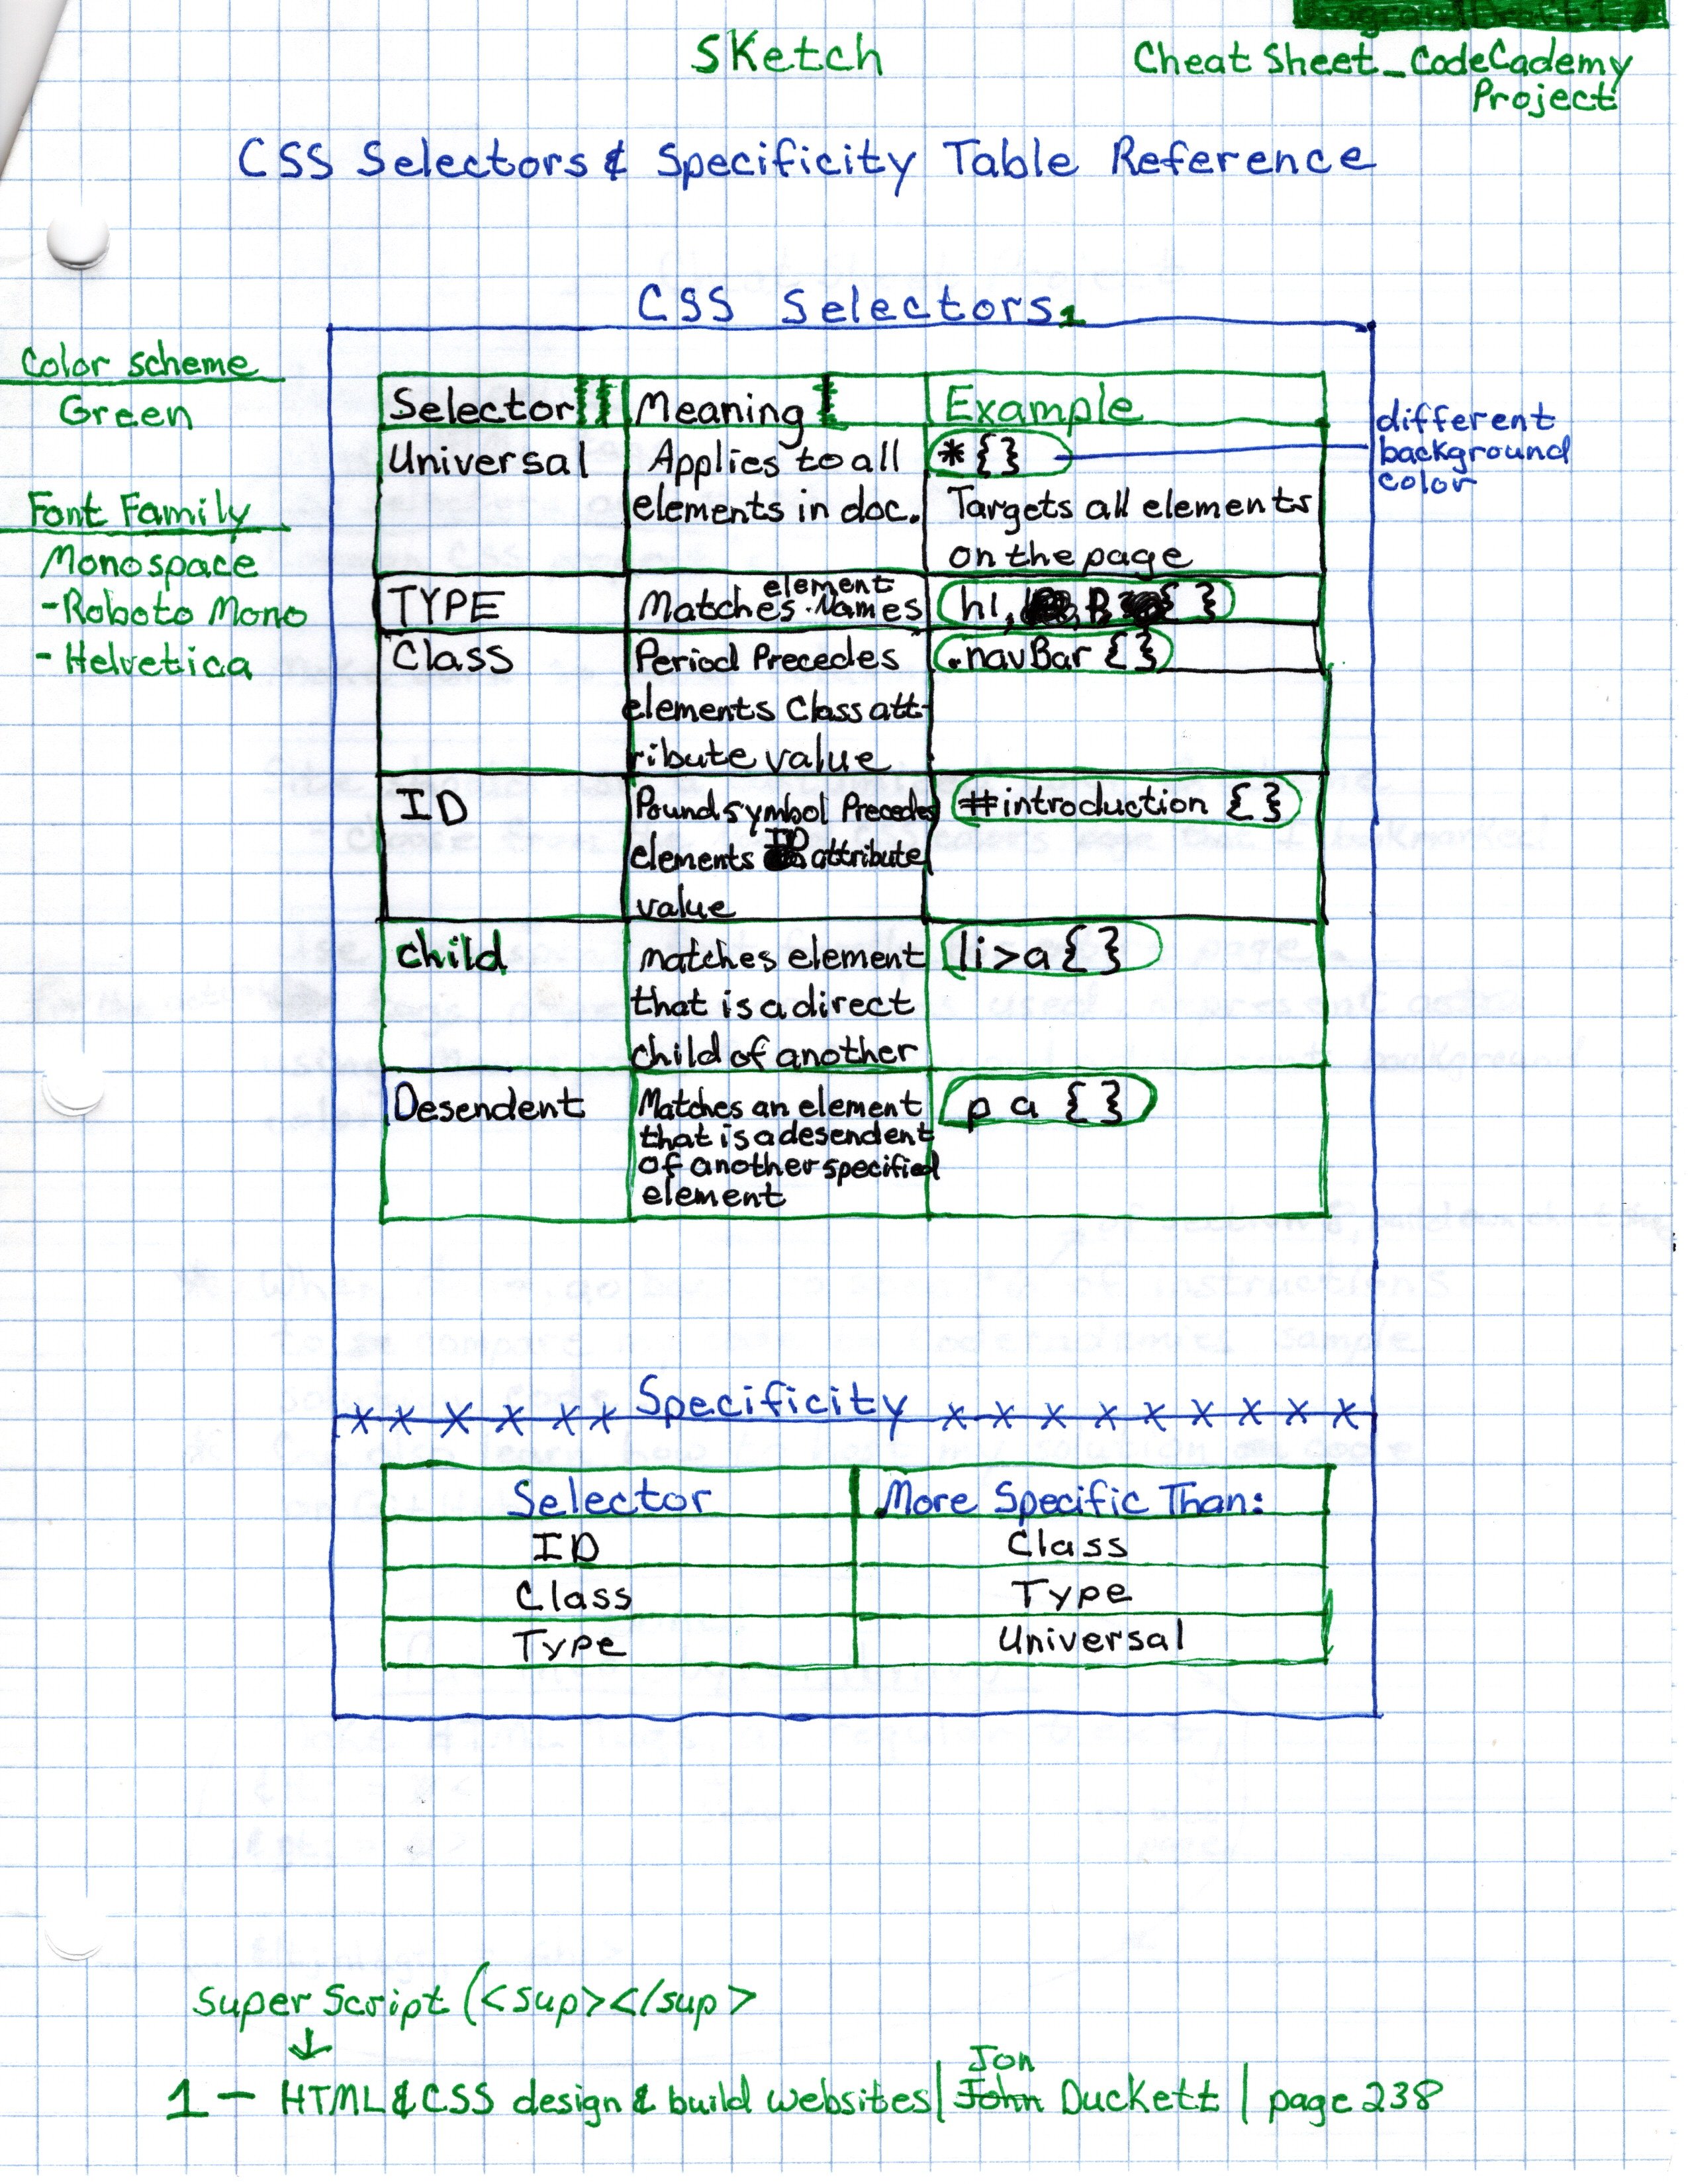 Sketch
Cheat Sheet_CodeCademy
Project
CSS Selectors & Specificity Table Reference
CSS Selectors1
Color scheme
Green
Font Family
Monospace
-Roboto Mono
- Helvetica
Selector Meaning Example
Universal
Applies to all
elements in doc.
*{}
Targets all elements
on the page
different
background
color
TYPE
element
Matches Names
h1, P { }
Class
Period Precedes
elements Class att-
ribute value
.navBar {}
ID
Pound symbol Precedes
elements ID attribute
value
#introduction {}
child
matches element
that is a direct
child of another
li>a{}
Desendent
Matches an element
that is a desendent
of another specified
element
p a {}
Specificity
Selector More Specific Than:
ID Class
Class Type
Type Universal
Super Script (<sup></sup>
1 — HTML & CSS design & build websites| John Duckett | page 238
Jon